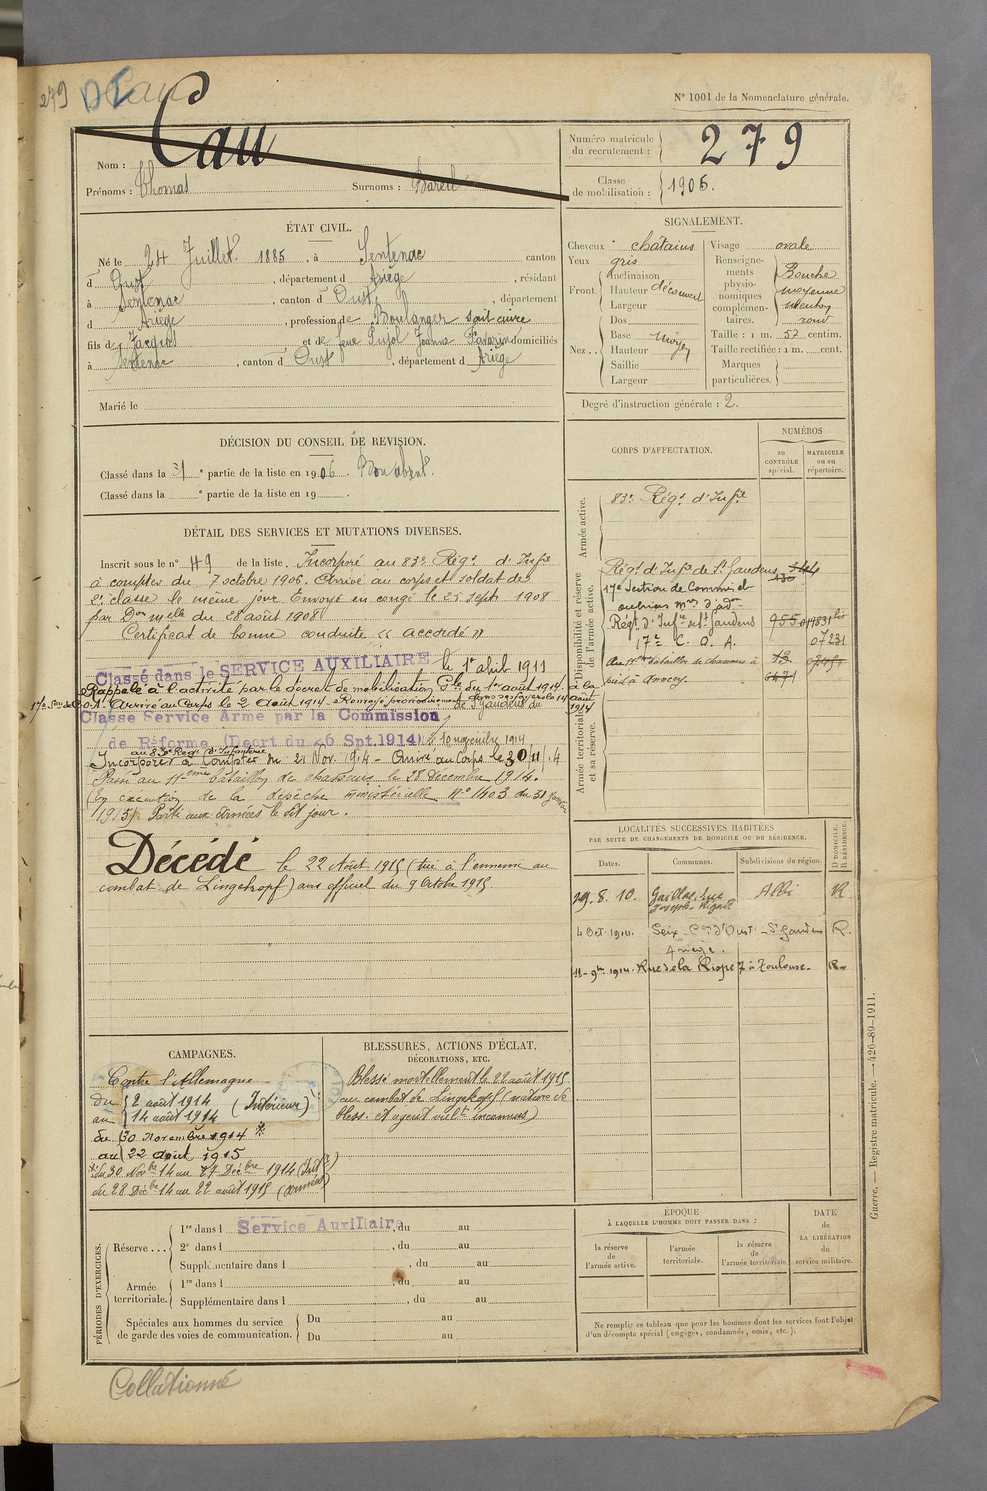 279
Cau
N° 1001 de la Nomenclature générale.
Nom : Cau
Prénoms : Thomas Surnoms : Bareil
Numéro matricule du recrutement : 279
Classe de mobilisation : 1905.
ÉTAT CIVIL.
Né le 24 Juillet 1885, à Sentenac canton
d' Oust, département d Ariège, résidant
à Sentenac, canton d' Oust, département
d Ariège, profession de Boulanger sait cuire
fils de Jacques et de feue Pujol Jeanne domiciliés
à Sentenac, canton d' Oust, département d Ariège
Marié le
SIGNALEMENT.
Cheveux châtains
Yeux gris
Front Inclinaison
Hauteur découvert
Largeur
Nez Dos
Base moyen
Hauteur
Saillie
Largeur
Visage ovale
Renseignements physionomiques complémentaires. Bouche moyenne menton rond
Taille : 1 m. 57 centim.
Taille rectifiée : 1 m. cent.
Marques particulières.
Degré d'instruction générale : 2.
DÉCISION DU CONSEIL DE REVISION.
Classé dans la 3 e partie de la liste en 1906. Bon absent.
Classé dans la e partie de la liste en 19 .
CORPS D'AFFECTATION.
NUMÉROS
AU CONTRÔLE spécial.
MATRICULE ou au répertoire.
Armée active.
83e Régt d'Infie
Disponibilité et réserve de l'armée active.
Régt d'Infie de St Gaudens
17e Section de Commis et
ouvriers mres d'adon
Régt d'Infie de St Gaudens
17e C. O. A.
Au 11me bataillon de chasseurs à
pied à Annecy.
Armée territoriale et sa réserve.
DÉTAIL DES SERVICES ET MUTATIONS DIVERSES.
Inscrit sous le n° 49 de la liste. Incorporé au 83e Régt d'Infie
à compter du 7 octobre 1906. Arrivé au corps et soldat de
2e classe le même jour. Envoyé en congé le 25 sept. 1908
par Don mlle du 28 août 1908
Certificat de bonne conduite « accordé »
Classé dans le SERVICE AUXILIAIRE le 1er avril 1911
Rappelé à l'activité par le décret de mobilisation Gle du 1er août 1914. à la
C.O.A. Arrivé au Corps le 2 Août 1914. Renvoyé provisoirement dans ses foyers le 14 août 1914
Classé Service Armé par la Commission de St Gaudens du
de Réforme (Décrt du 26 Spt. 1914) 10 novembre 1914
au 83e Régt d'Infanterie
Incorporé à compter du 21 Nov. 1914 - Arrivé au Corps le 30/11/14
Passé au 11eme bataillon de chasseurs le 28 Décembre 1914.
(En exécution de la dépêche ministérielle N° 1403 du 31 Janvier
1915) Parti aux armées le dit jour.
Décédé le 22 Août 1915 (tué à l'ennemi au
combat de Lingekopf) avis officiel du 9 Octobre 1915.
LOCALITÉS SUCCESSIVES HABITÉES
PAR SUITE DE CHANGEMENTS DE DOMICILE OU DE RÉSIDENCE.
Dates. Communes. Subdivisions de région. D DOMICILE. R RÉSIDENCE.
29. 8. 10. Gaillac, rue Joseph Rigal Albi R
4 Oct. 1911. Seix Con d'Oust Ariège. St Gaudens R.
11-9bre 1914. Rue de la Rispe 7 à Toulouse. R
CAMPAGNES.
Contre l'Allemagne
du 2 août 1914
au 14 août 1914 (Intérieur)
du 30 Novembre 1914
au 22 août 1915
du 30 Novbre 14 au 27 Décbre 1914 (Intr)
du 28 Décbre 14 au 22 août 1915 (Armées)
BLESSURES, ACTIONS D'ÉCLAT,
DÉCORATIONS, ETC.
Blessé mortellement le 22 août 1915
au combat de Lingekopf (nature de
bless. et agent vulnt inconnus)
PÉRIODES D'EXERCICES.
Réserve ... 1re dans l Service Auxiliaire, du au
2e dans l , du au
Supplémentaire dans l , du au
Armée territoriale. 1re dans l , du au
Supplémentaire dans l , du au
Spéciales aux hommes du service de garde des voies de communication. Du au
Du au
ÉPOQUE
À LAQUELLE L'HOMME DOIT PASSER DANS :
la réserve de l'armée active.
l'armée territoriale.
la réserve de l'armée territoriale.
DATE de LA LIBÉRATION du service militaire.
Ne remplir ce tableau que pour les hommes dont les services font l'objet
d'un décompte spécial (engagés, condamnés, omis, etc.).
Guerre. — Registre matricule. — 426-89-1911.
Collationné